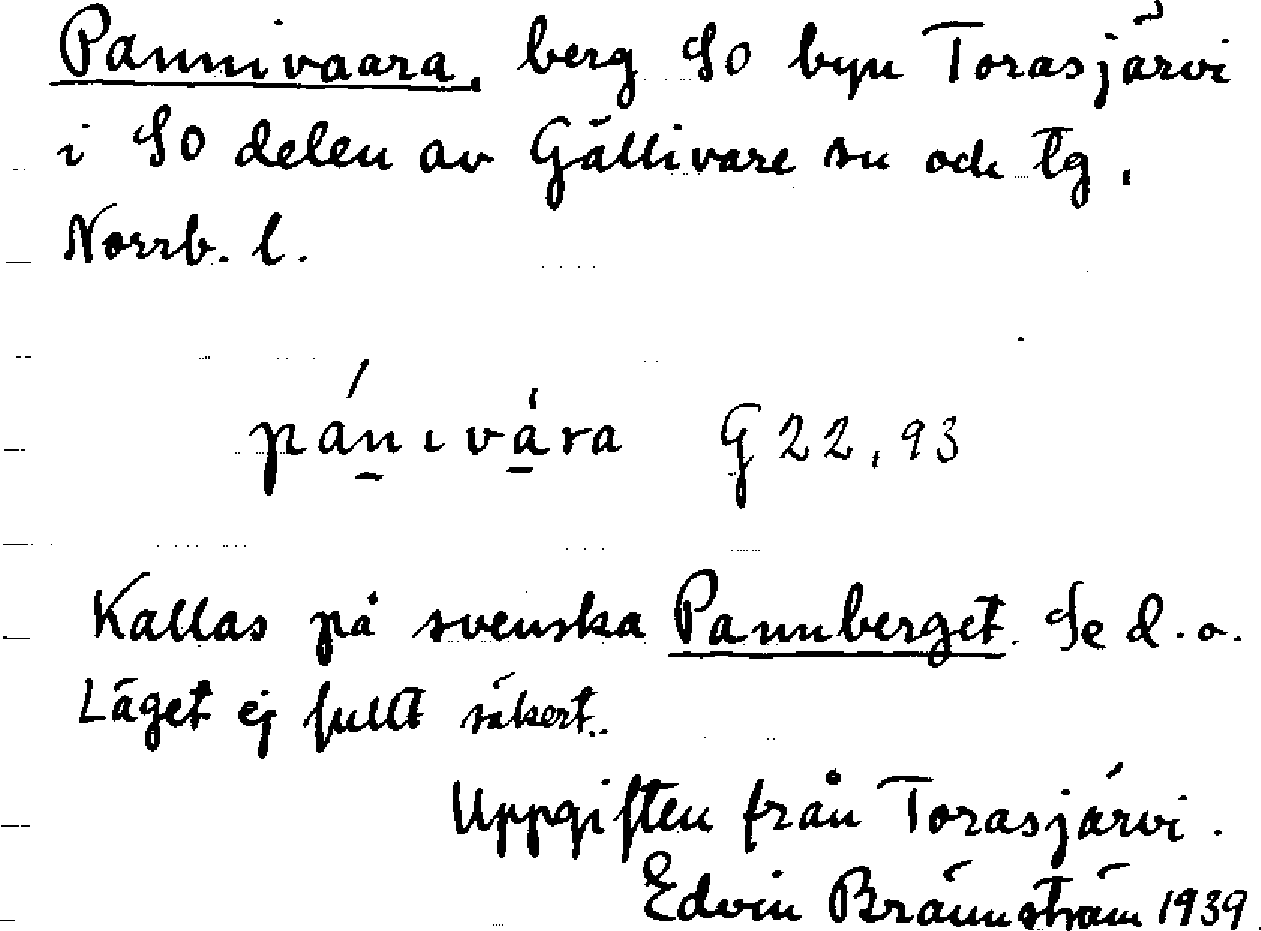 Pannivaara, berg SO byn Torasjärvi
i SO delen av Gällivare sn och tg,
Norrb. l.
pánıvára G 22,93
Kallas på svenska Pannberget. Se d. o.
Läget ej fullt säkert.
Uppgiften från Torasjärvi.
Edvin Brännström 1939